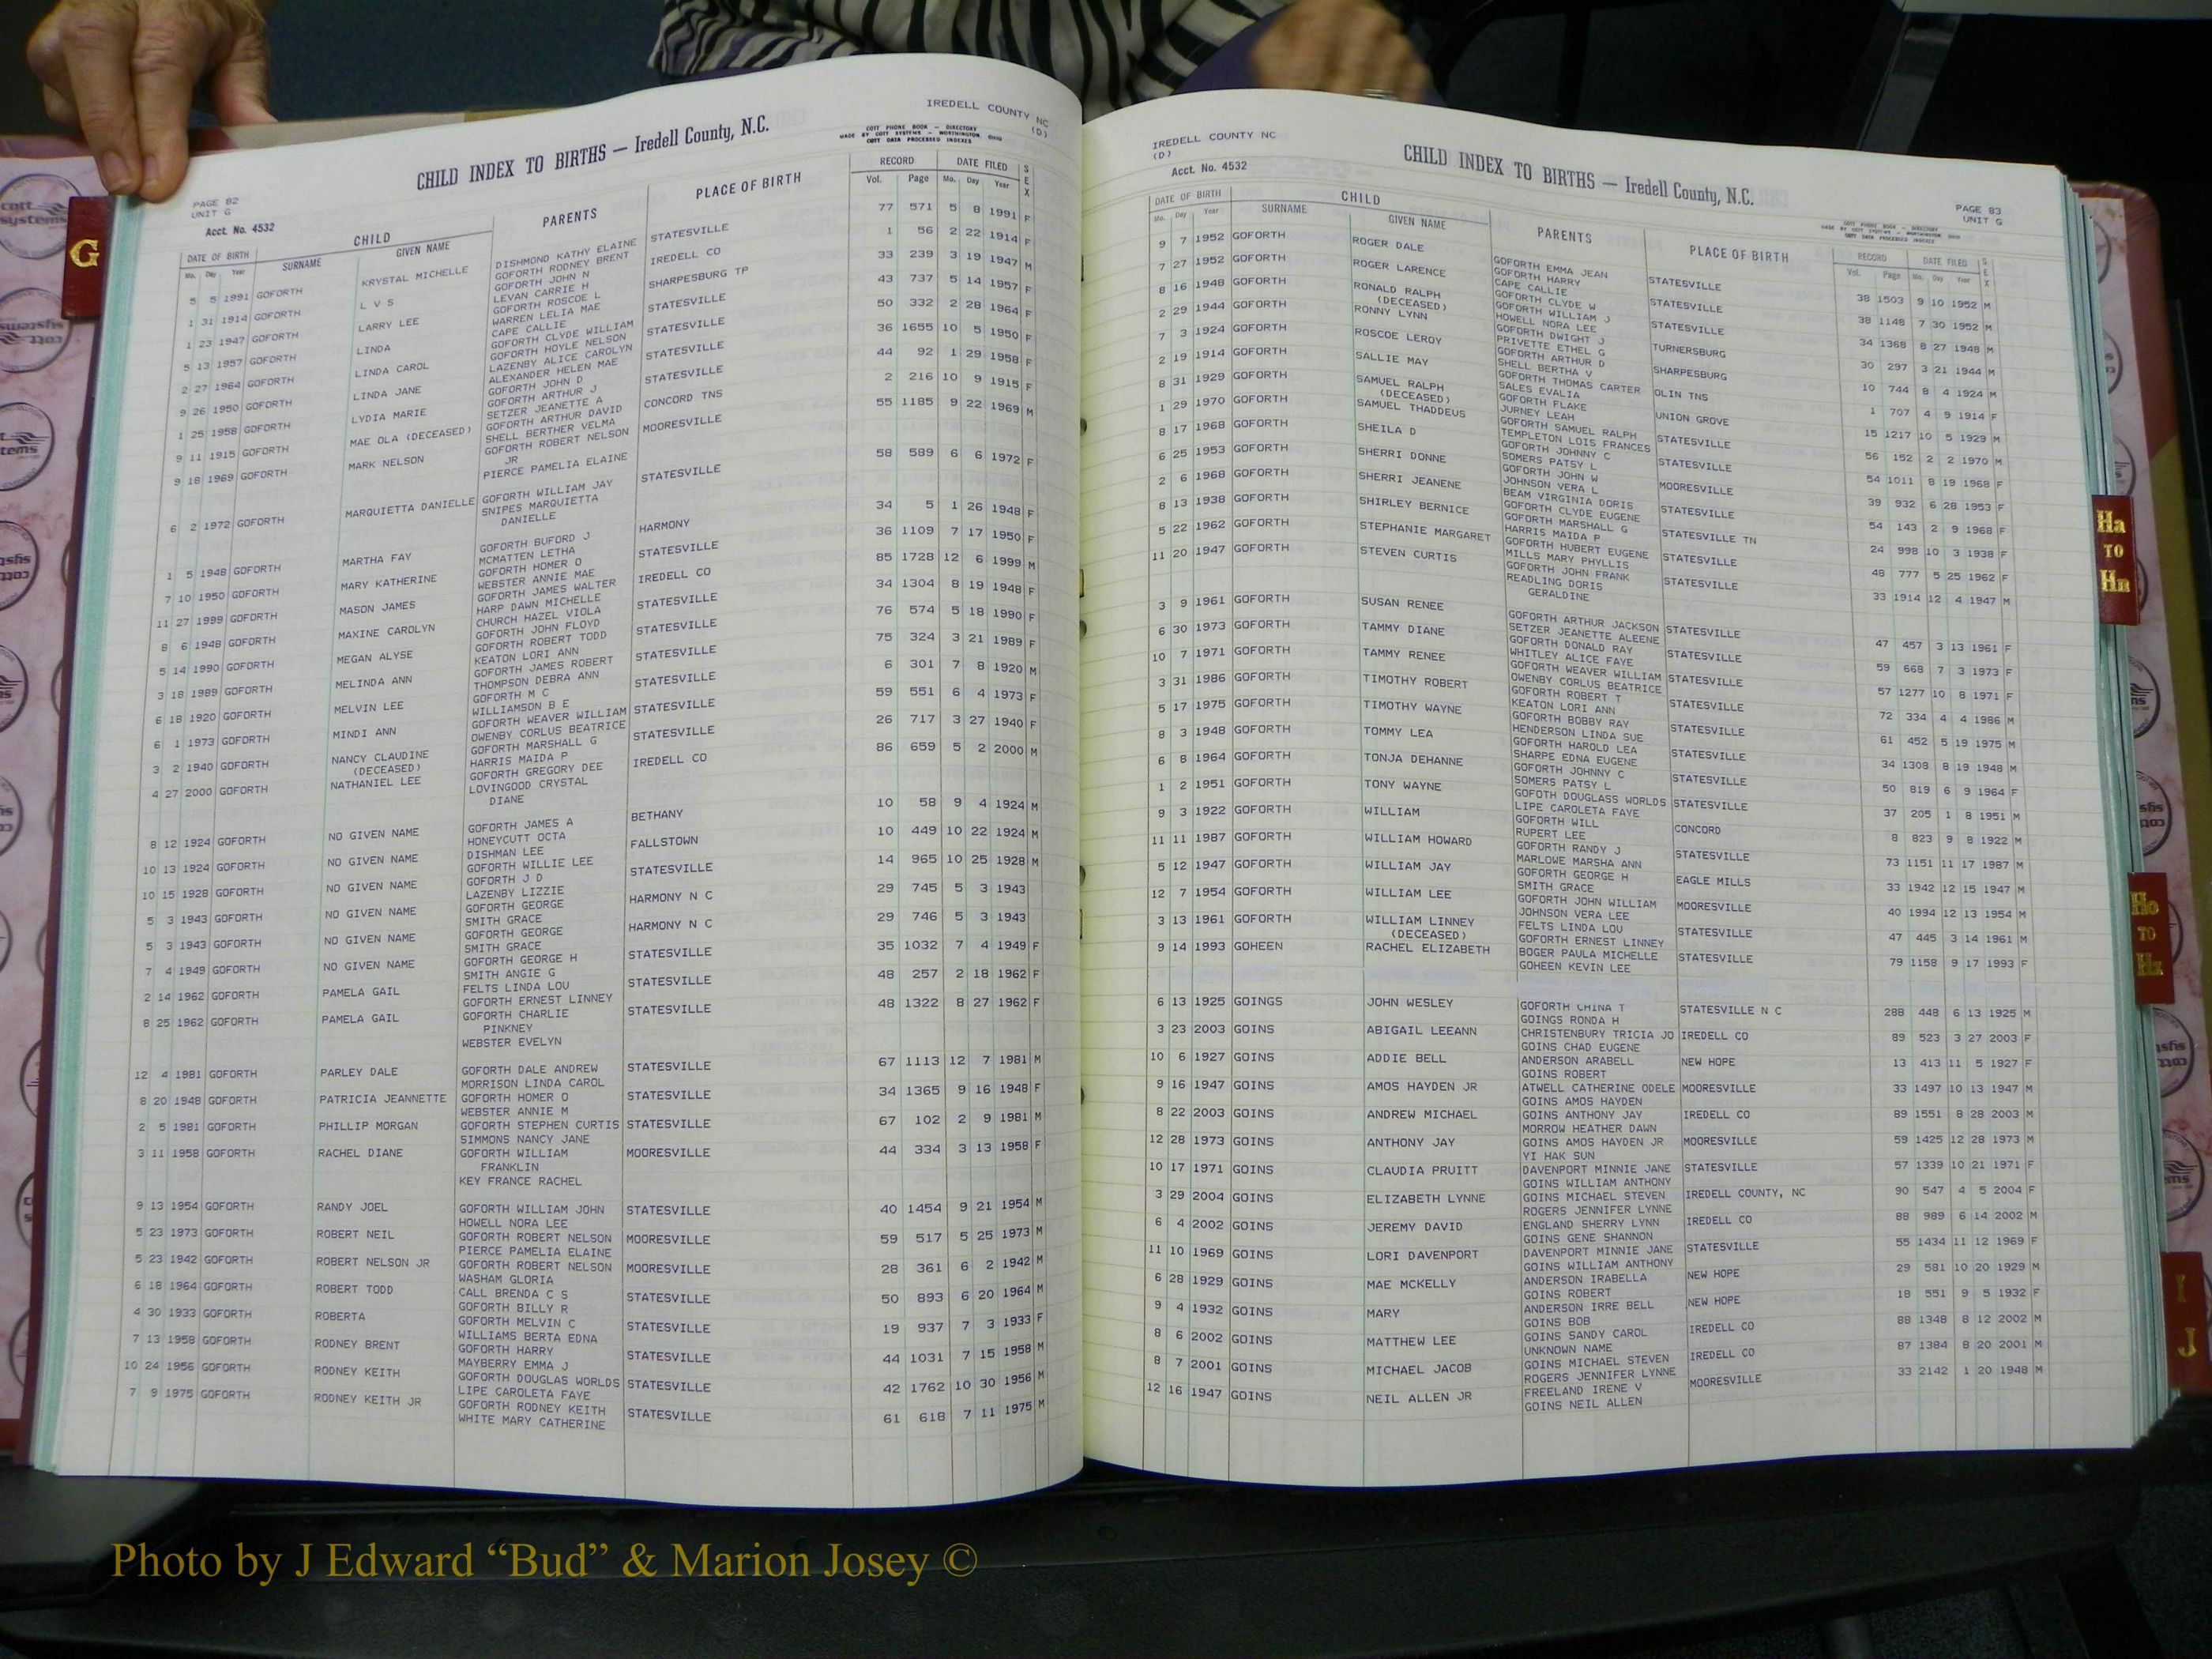 IREDELL COUNTY NC
(D)
COTT PHONE BOOK — DIRECTORY
MADE BY COTT SYSTEMS — WORTHINGTON OHIO
COTT DATA PROCESSED INDEXES
CHILD INDEX TO BIRTHS — Iredell County, N.C.
PAGE 82
UNIT G
Acct. No. 4532
DATE OF BIRTH CHILD PARENTS PLACE OF BIRTH RECORD DATE FILED SEX
Mo. Day Year SURNAME GIVEN NAME Vol. Page Mo. Day Year
5 5 1991 GOFORTH KRYSTAL MICHELLE DISHMOND KATHY ELAINE STATESVILLE 77 571 5 8 1991 F
GOFORTH RODNEY BRENT
1 31 1914 GOFORTH L V S GOFORTH JOHN N IREDELL CO 1 56 2 22 1914 F
LEVAN CARRIE H
1 23 1947 GOFORTH LARRY LEE GOFORTH ROSCOE L SHARPESBURG TP 33 239 3 19 1947 M
WARREN LELIA MAE
5 13 1957 GOFORTH LINDA CAPE CALLIE STATESVILLE 43 737 5 14 1957 F
GOFORTH CLYDE WILLIAM
2 27 1964 GOFORTH LINDA CAROL GOFORTH HOYLE NELSON STATESVILLE 50 332 2 28 1964 F
LAZENBY ALICE CAROLYN
9 26 1950 GOFORTH LINDA JANE ALEXANDER HELEN MAE STATESVILLE 36 1655 10 5 1950 F
GOFORTH JOHN D
1 25 1958 GOFORTH LYDIA MARIE GOFORTH ARTHUR J STATESVILLE 44 92 1 29 1958 F
SETZER JEANETTE A
9 11 1915 GOFORTH MAE OLA (DECEASED) GOFORTH ARTHUR DAVID CONCORD TNS 2 216 10 9 1915 F
SHELL BERTHER VELMA
9 18 1969 GOFORTH MARK NELSON GOFORTH ROBERT NELSON MOORESVILLE 55 1185 9 22 1969 M
JR
PIERCE PAMELIA ELAINE
6 2 1972 GOFORTH MARQUIETTA DANIELLE GOFORTH WILLIAM JAY STATESVILLE 58 589 6 6 1972 F
SNIPES MARQUIETTA
DANIELLE
1 5 1948 GOFORTH MARTHA FAY GOFORTH BUFORD J HARMONY 34 5 1 26 1948 F
MCMATTEN LETHA
7 10 1950 GOFORTH MARY KATHERINE GOFORTH HOMER O STATESVILLE 36 1109 7 17 1950 F
WEBSTER ANNIE MAE
11 27 1999 GOFORTH MASON JAMES GOFORTH JAMES WALTER IREDELL CO 85 1728 12 6 1999 M
HARP DAWN MICHELLE
8 6 1948 GOFORTH MAXINE CAROLYN CHURCH HAZEL VIOLA STATESVILLE 34 1304 8 19 1948 F
GOFORTH JOHN FLOYD
5 14 1990 GOFORTH MEGAN ALYSE GOFORTH ROBERT TODD STATESVILLE 76 574 5 18 1990 F
KEATON LORI ANN
3 18 1989 GOFORTH MELINDA ANN GOFORTH JAMES ROBERT STATESVILLE 75 324 3 21 1989 F
THOMPSON DEBRA ANN
6 18 1920 GOFORTH MELVIN LEE GOFORTH M C STATESVILLE 6 301 7 8 1920 M
WILLIAMSON B E
6 1 1973 GOFORTH MINDI ANN GOFORTH WEAVER WILLIAM STATESVILLE 59 551 6 4 1973 F
OWENBY CORLUS BEATRICE
3 2 1940 GOFORTH NANCY CLAUDINE GOFORTH MARSHALL G STATESVILLE 26 717 3 27 1940 F
(DECEASED) HARRIS MAIDA P
4 27 2000 GOFORTH NATHANIEL LEE GOFORTH GREGORY DEE IREDELL CO 86 659 5 2 2000 M
LOVINGOOD CRYSTAL
DIANE
8 12 1924 GOFORTH NO GIVEN NAME GOFORTH JAMES A BETHANY 10 58 9 4 1924 M
HONEYCUTT OCTA
10 13 1924 GOFORTH NO GIVEN NAME DISHMAN LEE FALLSTOWN 10 449 10 22 1924 M
GOFORTH WILLIE LEE
10 15 1928 GOFORTH NO GIVEN NAME GOFORTH J D STATESVILLE 14 965 10 25 1928 M
LAZENBY LIZZIE
5 3 1943 GOFORTH NO GIVEN NAME GOFORTH GEORGE HARMONY N C 29 745 5 3 1943
SMITH GRACE
5 3 1943 GOFORTH NO GIVEN NAME GOFORTH GEORGE HARMONY N C 29 746 5 3 1943
SMITH GRACE
7 4 1949 GOFORTH NO GIVEN NAME GOFORTH GEORGE H STATESVILLE 35 1032 7 4 1949 F
SMITH ANGIE G
2 14 1962 GOFORTH PAMELA GAIL FELTS LINDA LOU STATESVILLE 48 257 2 18 1962 F
GOFORTH ERNEST LINNEY
8 25 1962 GOFORTH PAMELA GAIL GOFORTH CHARLIE STATESVILLE 48 1322 8 27 1962 F
PINKNEY
WEBSTER EVELYN
12 4 1981 GOFORTH PARLEY DALE GOFORTH DALE ANDREW STATESVILLE 67 1113 12 7 1981 M
MORRISON LINDA CAROL
8 20 1948 GOFORTH PATRICIA JEANNETTE GOFORTH HOMER O STATESVILLE 34 1365 9 16 1948 F
WEBSTER ANNIE M
2 5 1981 GOFORTH PHILLIP MORGAN GOFORTH STEPHEN CURTIS STATESVILLE 67 102 2 9 1981 M
SIMMONS NANCY JANE
3 11 1958 GOFORTH RACHEL DIANE GOFORTH WILLIAM MOORESVILLE 44 334 3 13 1958 F
FRANKLIN
KEY FRANCE RACHEL
9 13 1954 GOFORTH RANDY JOEL GOFORTH WILLIAM JOHN STATESVILLE 40 1454 9 21 1954 M
HOWELL NORA LEE
5 23 1973 GOFORTH ROBERT NEIL GOFORTH ROBERT NELSON MOORESVILLE 59 517 5 25 1973 M
PIERCE PAMELIA ELAINE
5 23 1942 GOFORTH ROBERT NELSON JR GOFORTH ROBERT NELSON MOORESVILLE 28 361 6 2 1942 M
WASHAM GLORIA
6 18 1964 GOFORTH ROBERT TODD CALL BRENDA C S STATESVILLE 50 893 6 20 1964 M
GOFORTH BILLY R
4 30 1933 GOFORTH ROBERTA GOFORTH MELVIN C STATESVILLE 19 937 7 3 1933 F
WILLIAMS BERTA EDNA
7 13 1958 GOFORTH RODNEY BRENT GOFORTH HARRY STATESVILLE 44 1031 7 15 1958 M
MAYBERRY EMMA J
10 24 1956 GOFORTH RODNEY KEITH GOFORTH DOUGLAS WORLDS STATESVILLE 42 1762 10 30 1956 M
LIPE CAROLETA FAYE
7 9 1975 GOFORTH RODNEY KEITH JR GOFORTH RODNEY KEITH STATESVILLE 61 618 7 11 1975 M
WHITE MARY CATHERINE
IREDELL COUNTY NC
(D)
Acct. No. 4532
CHILD INDEX TO BIRTHS — Iredell County, N.C.
PAGE 83
UNIT G
COTT PHONE BOOK — DIRECTORY
MADE BY COTT SYSTEMS — WORTHINGTON OHIO
COTT DATA PROCESSED INDEXES
DATE OF BIRTH CHILD PARENTS PLACE OF BIRTH RECORD DATE FILED SEX
Mo. Day Year SURNAME GIVEN NAME Vol. Page Mo. Day Year
9 7 1952 GOFORTH ROGER DALE GOFORTH EMMA JEAN STATESVILLE 38 1503 9 10 1952 M
GOFORTH HARRY
7 27 1952 GOFORTH ROGER LARENCE CAPE CALLIE STATESVILLE 38 1148 7 30 1952 M
GOFORTH CLYDE W
8 16 1948 GOFORTH RONALD RALPH GOFORTH WILLIAM J STATESVILLE 34 1368 8 27 1948 M
(DECEASED) HOWELL NORA LEE
2 29 1944 GOFORTH RONNY LYNN GOFORTH DWIGHT J TURNERSBURG 30 297 3 21 1944 M
PRIVETTE ETHEL G
7 3 1924 GOFORTH ROSCOE LEROY GOFORTH ARTHUR D SHARPESBURG 10 744 8 4 1924 M
SHELL BERTHA V
2 19 1914 GOFORTH SALLIE MAY GOFORTH THOMAS CARTER OLIN TNS 1 707 4 9 1914 F
SALES EVALIA
8 31 1929 GOFORTH SAMUEL RALPH GOFORTH FLAKE UNION GROVE 15 1217 10 5 1929 M
(DECEASED) JURNEY LEAH
1 29 1970 GOFORTH SAMUEL THADDEUS GOFORTH SAMUEL RALPH STATESVILLE 56 152 2 2 1970 M
TEMPLETON LOIS FRANCES
8 17 1968 GOFORTH SHEILA D GOFORTH JOHNNY C STATESVILLE 54 1011 8 19 1968 F
SOMERS PATSY L
6 25 1953 GOFORTH SHERRI DONNE GOFORTH JOHN W MOORESVILLE 39 932 6 28 1953 F
JOHNSON VERA L
2 6 1968 GOFORTH SHERRI JEANENE BEAM VIRGINIA DORIS STATESVILLE 54 143 2 9 1968 F
GOFORTH CLYDE EUGENE
8 13 1938 GOFORTH SHIRLEY BERNICE GOFORTH MARSHALL G STATESVILLE TN 24 998 10 3 1938 F
HARRIS MAIDA P
5 22 1962 GOFORTH STEPHANIE MARGARET GOFORTH HUBERT EUGENE STATESVILLE 48 777 5 25 1962 F
MILLS MARY PHYLLIS
11 20 1947 GOFORTH STEVEN CURTIS GOFORTH JOHN FRANK STATESVILLE 33 1914 12 4 1947 M
READLING DORIS
GERALDINE
3 9 1961 GOFORTH SUSAN RENEE GOFORTH ARTHUR JACKSON STATESVILLE 47 457 3 13 1961 F
SETZER JEANETTE ALEENE
6 30 1973 GOFORTH TAMMY DIANE GOFORTH DONALD RAY STATESVILLE 59 668 7 3 1973 F
WHITLEY ALICE FAYE
10 7 1971 GOFORTH TAMMY RENEE GOFORTH WEAVER WILLIAM STATESVILLE 57 1277 10 8 1971 F
OWENBY CORLUS BEATRICE
3 31 1986 GOFORTH TIMOTHY ROBERT GOFORTH ROBERT T STATESVILLE 72 334 4 4 1986 M
KEATON LORI ANN
5 17 1975 GOFORTH TIMOTHY WAYNE GOFORTH BOBBY RAY STATESVILLE 61 452 5 19 1975 M
HENDERSON LINDA SUE
8 3 1948 GOFORTH TOMMY LEA GOFORTH HAROLD LEA STATESVILLE 34 1308 8 19 1948 M
SHARPE EDNA EUGENE
6 8 1964 GOFORTH TONJA DEHANNE GOFORTH JOHNNY C STATESVILLE 50 819 6 9 1964 F
SOMERS PATSY L
1 2 1951 GOFORTH TONY WAYNE GOFOTH DOUGLASS WORLDS STATESVILLE 37 205 1 8 1951 M
LIPE CAROLETA FAYE
9 3 1922 GOFORTH WILLIAM GOFORTH WILL CONCORD 8 823 9 8 1922 M
RUPERT LEE
11 11 1987 GOFORTH WILLIAM HOWARD GOFORTH RANDY J STATESVILLE 73 1151 11 17 1987 M
MARLOWE MARSHA ANN
5 12 1947 GOFORTH WILLIAM JAY GOFORTH GEORGE H EAGLE MILLS 33 1942 12 15 1947 M
SMITH GRACE
12 7 1954 GOFORTH WILLIAM LEE GOFORTH JOHN WILLIAM MOORESVILLE 40 1994 12 13 1954 M
JOHNSON VERA LEE
3 13 1961 GOFORTH WILLIAM LINNEY FELTS LINDA LOU STATESVILLE 47 445 3 14 1961 M
(DECEASED) GOFORTH ERNEST LINNEY
9 14 1993 GOHEEN RACHEL ELIZABETH BOGER PAULA MICHELLE STATESVILLE 79 1158 9 17 1993 F
GOHEEN KEVIN LEE
6 13 1925 GOINGS JOHN WESLEY GOFORTH CHINA T STATESVILLE N C 288 448 6 13 1925 M
GOINGS RONDA H
3 23 2003 GOINS ABIGAIL LEEANN CHRISTENBURY TRICIA JO IREDELL CO 89 523 3 27 2003 F
GOINS CHAD EUGENE
10 6 1927 GOINS ADDIE BELL ANDERSON ARABELL NEW HOPE 13 413 11 5 1927 F
GOINS ROBERT
9 16 1947 GOINS AMOS HAYDEN JR ATWELL CATHERINE ODELE MOORESVILLE 33 1497 10 13 1947 M
GOINS AMOS HAYDEN
8 22 2003 GOINS ANDREW MICHAEL GOINS ANTHONY JAY IREDELL CO 89 1551 8 28 2003 M
MORROW HEATHER DAWN
12 28 1973 GOINS ANTHONY JAY GOINS AMOS HAYDEN JR MOORESVILLE 59 1425 12 28 1973 M
YI HAK SUN
10 17 1971 GOINS CLAUDIA PRUITT DAVENPORT MINNIE JANE STATESVILLE 57 1339 10 21 1971 F
GOINS WILLIAM ANTHONY
3 29 2004 GOINS ELIZABETH LYNNE GOINS MICHAEL STEVEN IREDELL COUNTY, NC 90 547 4 5 2004 F
ROGERS JENNIFER LYNNE
6 4 2002 GOINS JEREMY DAVID ENGLAND SHERRY LYNN IREDELL CO 88 989 6 14 2002 M
GOINS GENE SHANNON
11 10 1969 GOINS LORI DAVENPORT DAVENPORT MINNIE JANE STATESVILLE 55 1434 11 12 1969 F
GOINS WILLIAM ANTHONY
6 28 1929 GOINS MAE MCKELLY ANDERSON IRABELLA NEW HOPE 29 581 10 20 1929 M
GOINS ROBERT
9 4 1932 GOINS MARY ANDERSON IRRE BELL NEW HOPE 18 551 9 5 1932 F
GOINS BOB
8 6 2002 GOINS MATTHEW LEE GOINS SANDY CAROL IREDELL CO 88 1348 8 12 2002 M
UNKNOWN NAME
8 7 2001 GOINS MICHAEL JACOB GOINS MICHAEL STEVEN IREDELL CO 87 1384 8 20 2001 M
ROGERS JENNIFER LYNNE
12 16 1947 GOINS NEIL ALLEN JR FREELAND IRENE V MOORESVILLE 33 2142 1 20 1948 M
GOINS NEIL ALLEN
G
Ha
TO
Hn
Ho
TO
Hz
I
J
cott
systems
Photo by J Edward “Bud” & Marion Josey ©